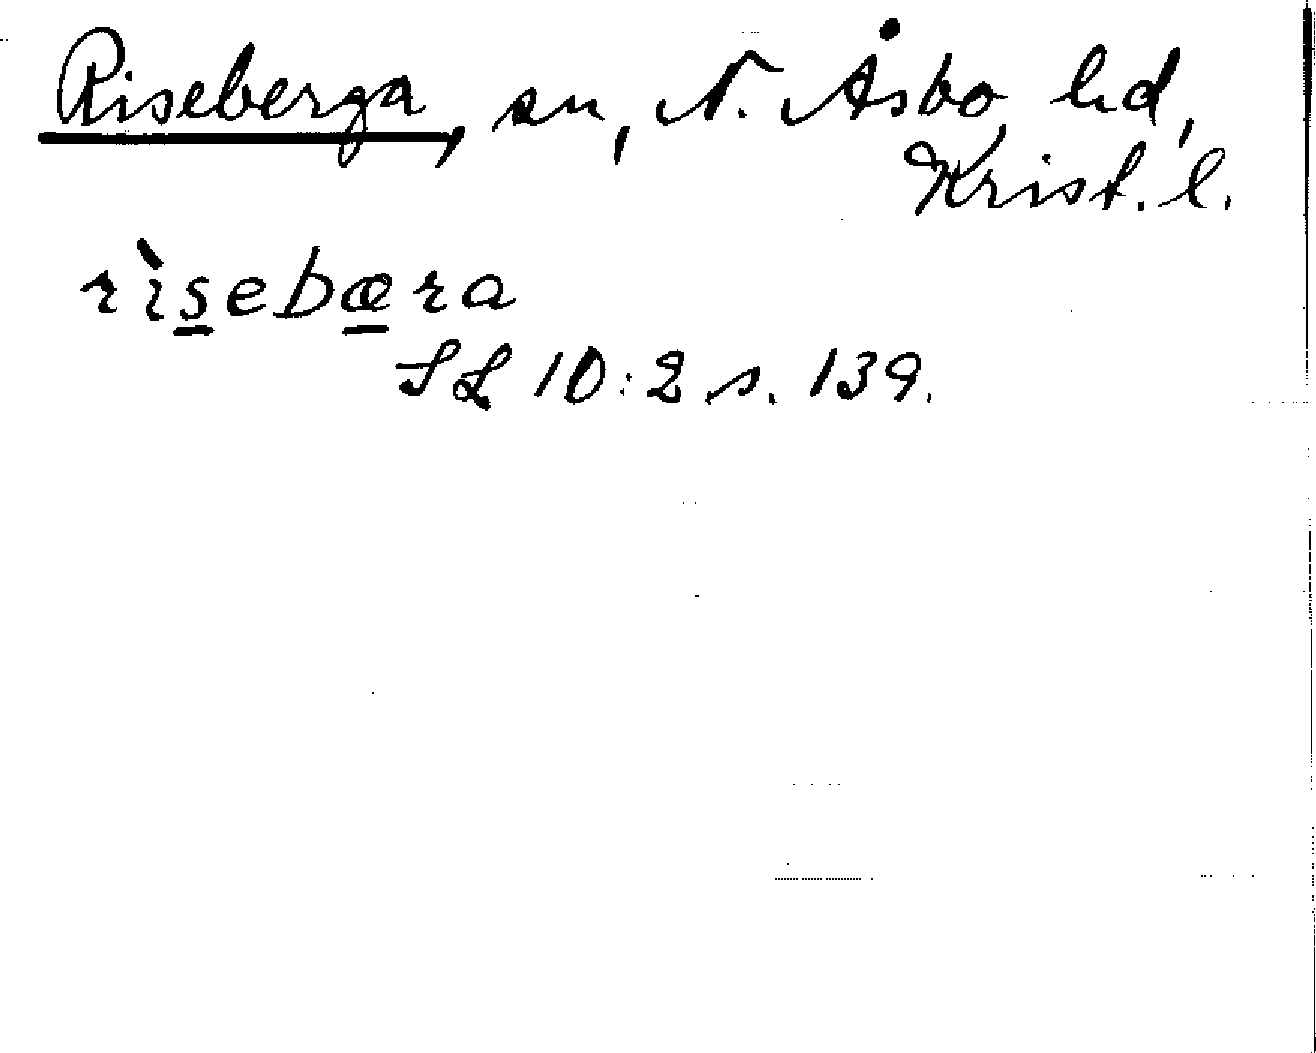 Riseberga, sn, N. Åsbo hd,
Krist. l.
rìsebæra
SL 10:2 s. 139.